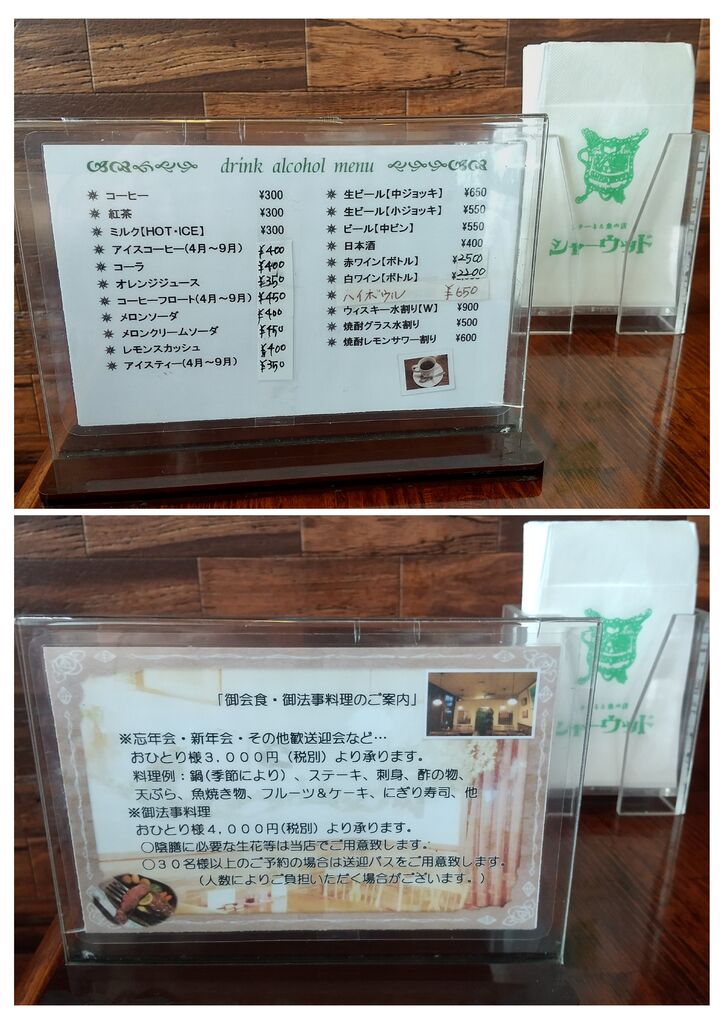 drink alcohol menu
コーヒー ¥300
紅茶 ¥300
ミルク【HOT・ICE】 ¥300
アイスコーヒー(4月～9月) ¥400
コーラ ¥400
オレンジジュース ¥350
コーヒーフロート(4月～9月) ¥450
メロンソーダ ¥400
メロンクリームソーダ ¥450
レモンスカッシュ ¥400
アイスティー(4月～9月) ¥350
生ビール【中ジョッキ】 ¥650
生ビール【小ジョッキ】 ¥550
ビール【中ビン】 ¥550
日本酒 ¥400
赤ワイン【ボトル】 ¥2500
白ワイン【ボトル】 ¥2200
ハイボウル ¥650
ウィスキー水割り【W】 ¥900
焼酎グラス水割り ¥500
焼酎レモンサワー割り ¥600
ステーキと魚の店
シャーウッド
「御会食・御法事料理のご案内」
※忘年会・新年会・その他歓送迎会など…
おひとり様３,０００円（税別）より承ります。
料理例：鍋(季節により）、ステーキ、刺身、酢の物、
天ぷら、魚焼き物、フルーツ＆ケーキ、にぎり寿司、他
※御法事料理
おひとり様４,０００円(税別）より承ります。
○陰膳に必要な生花等は当店でご用意致します。
○３０名様以上のご予約の場合は送迎バスをご用意致します。
（人数によりご負担いただく場合がございます。）
ステーキと魚の店
シャーウッド